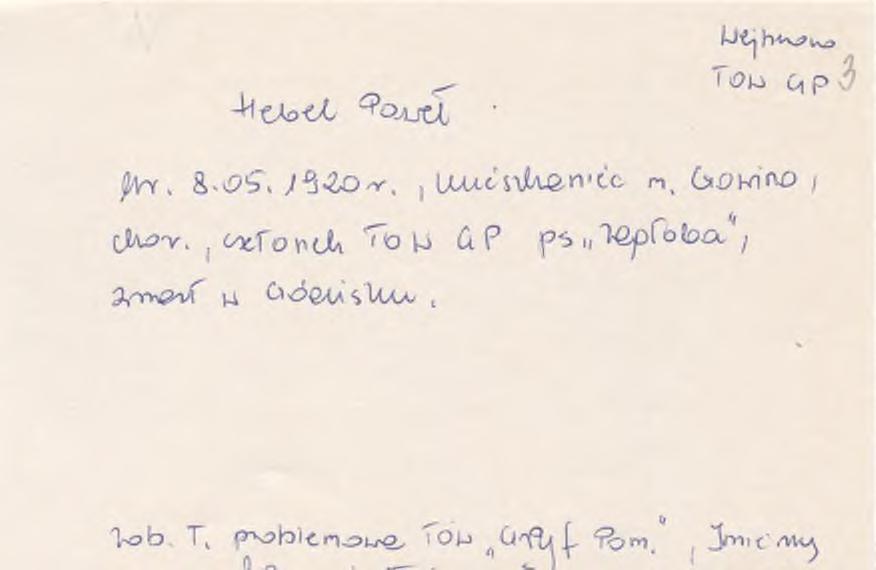 Wejherowo
TOW GP 3
Hebel Paweł
ur. 8.05.1920 r., mieszkaniec m. Gowino,
chor., członek TOW GP ps „Zepłoba",
zmarł w Gdańsku.
zob. T. problemowe TOW „Gryf Pom.", Imienny